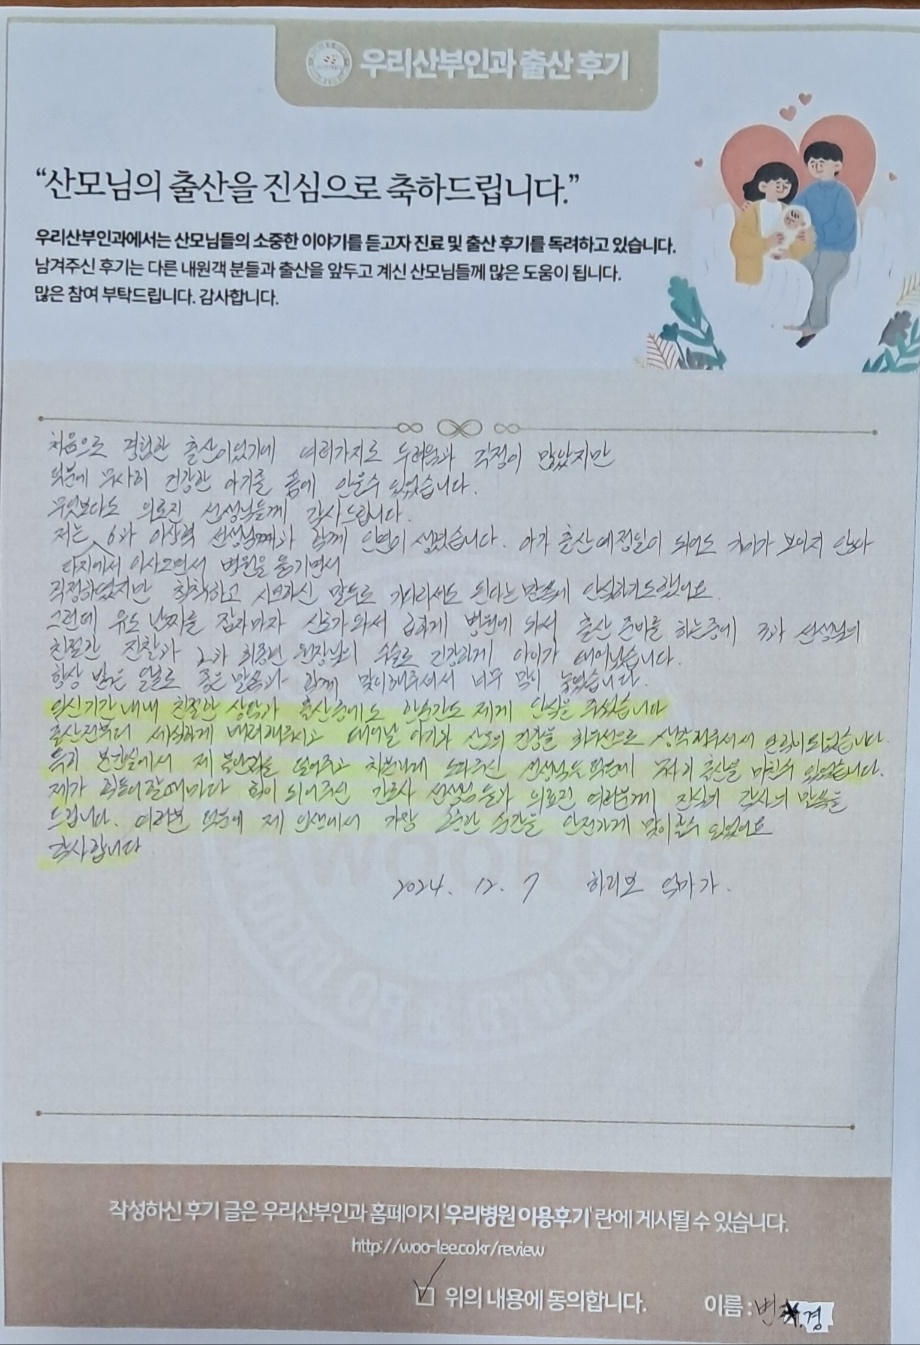 우리산부인과 출산 후기
“산모님의 출산을 진심으로 축하드립니다.”
우리산부인과에서는 산모님들의 소중한 이야기를 듣고자 진료 및 출산 후기를 독려하고 있습니다.
남겨주신 후기는 다른 내원객 분들과 출산을 앞두고 계신 산모님들께 많은 도움이 됩니다.
많은 참여 부탁드립니다. 감사합니다.
처음으로 경험한 출산이었기에 여러가지로 두려움과 걱정이 많았지만
덕분에 무사히 건강한 아기를 품에 안을수 있었습니다.
무엇보다도 의료진 선생님들께 감사드립니다.
저는 6과 이상혁 선생님께와 함께 인연이 생겼습니다. 아가 출산예정일이 되어도 기미가 보이지 않아
타지에서 이사오면서 병원을 옮기면서
걱정하였지만 침착하고 시원하신 말투로 기다려서도 된다는 말씀에 안심하기도했어요.
그런데 유도 날짜를 잡자마자 신호가 와서 급하게 병원에 와서 출산 준비를 하는중에 3과 선생님의
친절한 진찰과 2과 원장님의 수술로 건강하게 아이가 태어났습니다.
항상 밝은 얼굴로 좋은 말씀과 함께 맞이해주셔서 너무 맘이 놓였습니다.
임신기간 내내 친절한 상담과 출산중에도 한순간도 제게 안심을 주셨습니다
출산전부터 세심하게 배려해주시고 태어날 아기와 산모의 건강을 최우선으로 생각해주셔서 큰 힘이 되었습니다.
특히 분만실에서 제 불안감을 덜어주고 차분하게 도와주신 선생님들 덕분에 무사히 출산을 마칠수 있었습니다.
제가 힘들어할때마다 힘이 되어주신 간호사 선생님들과 의료진 여러분께 진심의 감사의 말씀을
드립니다. 여러분 덕분에 제 인생에서 가장 소중한 순간을 안전하게 맞이할수 있었어요
감사합니다
2024. 12. 7 하리보 엄마가.
WOORI
WOORI OB & GYN CLINIC
작성하신 후기 글은 우리산부인과 홈페이지 '우리병원 이용후기' 란에 게시될 수 있습니다.
http://woo-lee.co.kr/review
위의 내용에 동의합니다. 이름 : 변 경